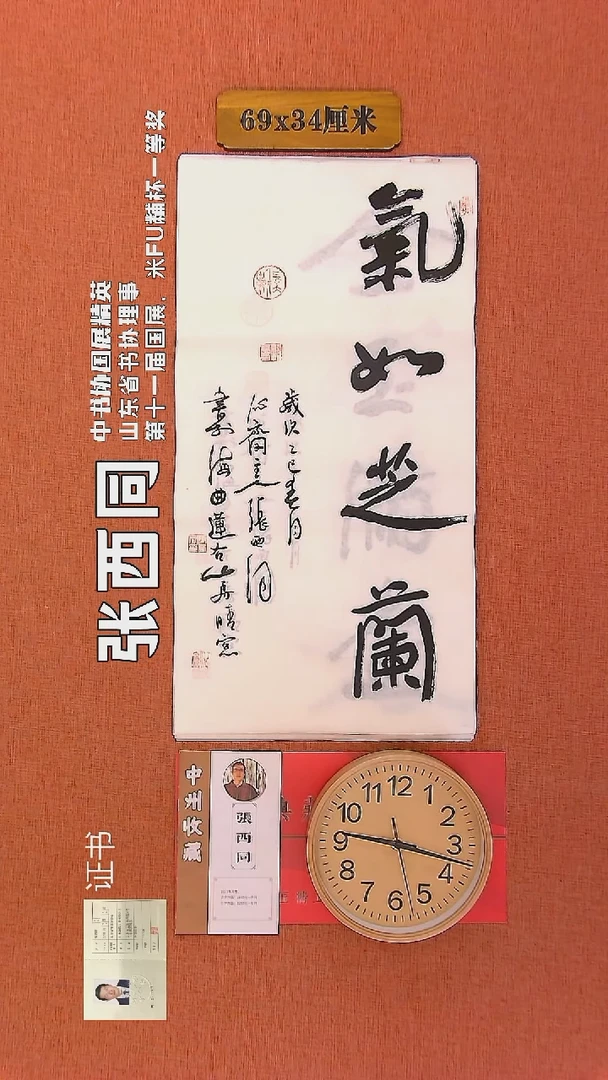 69x34厘米
氣如芝蘭
歲次乙巳春月
沁齋主人張西同
書於海曲蓮右山房晴窓
张西同
中书协国展精英
山东省书协理事
第十一届国展，米FU黼杯一等奖
證书
張西同
12
1
2
3
4
5
6
7
8
9
10
11